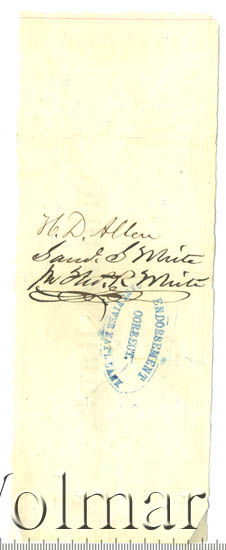 H. D. Allen
Saml. S White
R White
ENDORSEMENT
CORRECT.
Volmar